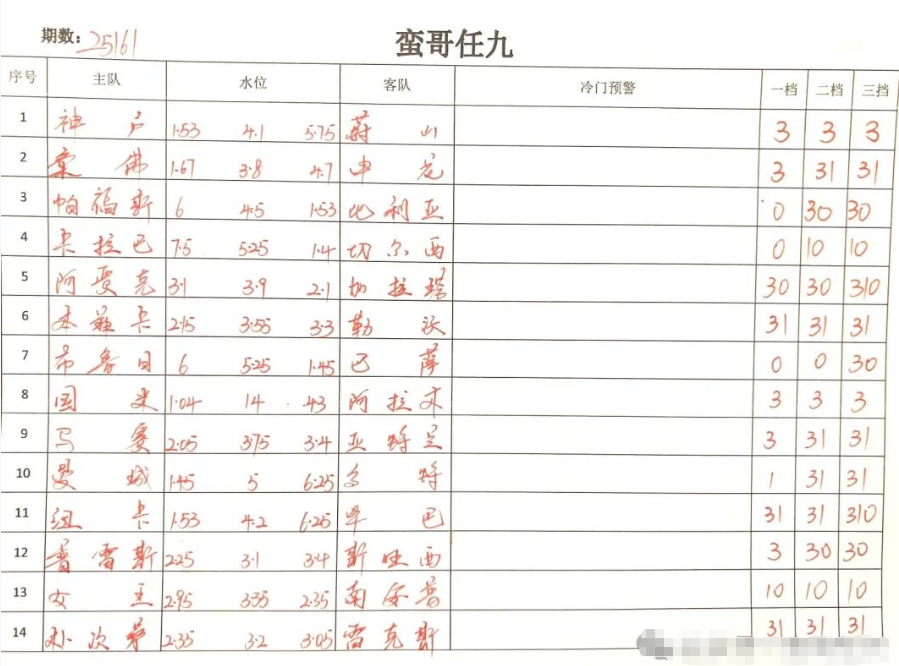 期数：25161 蛮哥任九
序号 主队 水位 客队 冷门预警 一档 二档 三挡
1 神户 1.53 4.1 5.75 蔚山 3 3 3
2 棠佛 1.67 3.8 4.7 申花 3 31 31
3 帕福斯 6 4.5 1.53 比利亚 0 30 30
4 卡拉巴 7.5 5.25 1.4 切尔西 0 10 10
5 阿贾克 3.1 3.9 2.1 加拉瑞 30 30 310
6 本菲卡 2.15 3.55 3.3 勒沃 31 31 31
7 布鲁日 6 5.25 1.45 巴萨 0 0 30
8 国米 1.04 14 .43 阿拉木 3 3 3
9 马赛 2.05 3.75 3.4 亚特兰 3 31 31
10 曼城 1.45 5 6.25 多特 1 31 31
11 纽卡 1.53 4.2 6.25 毕巴 31 31 310
12 普雷斯 2.25 3.1 3.4 斯旺西 3 30 30
13 女王 2.95 3.35 2.35 南安普 10 10 10
14 朴次茅 2.35 3.2 3.05 雷克斯 31 31 31